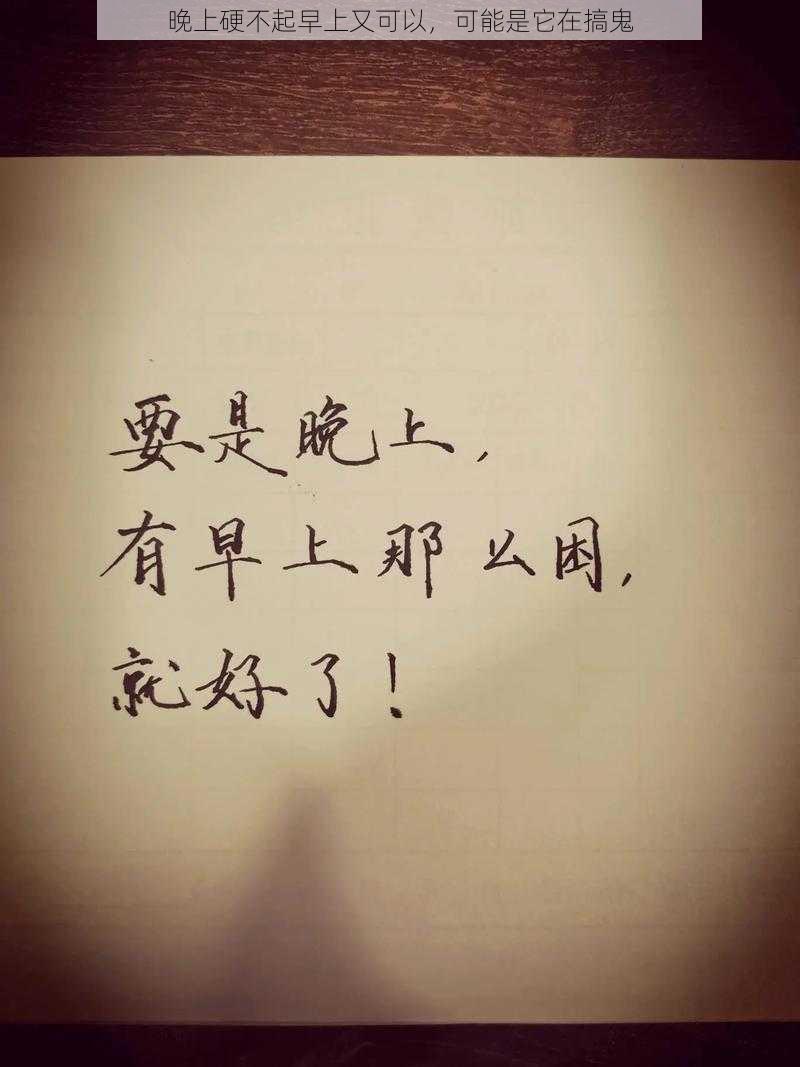 晚上硬不起早上又可以，可能是它在搞鬼
要是晚上，
有早上那么困，
就好了！